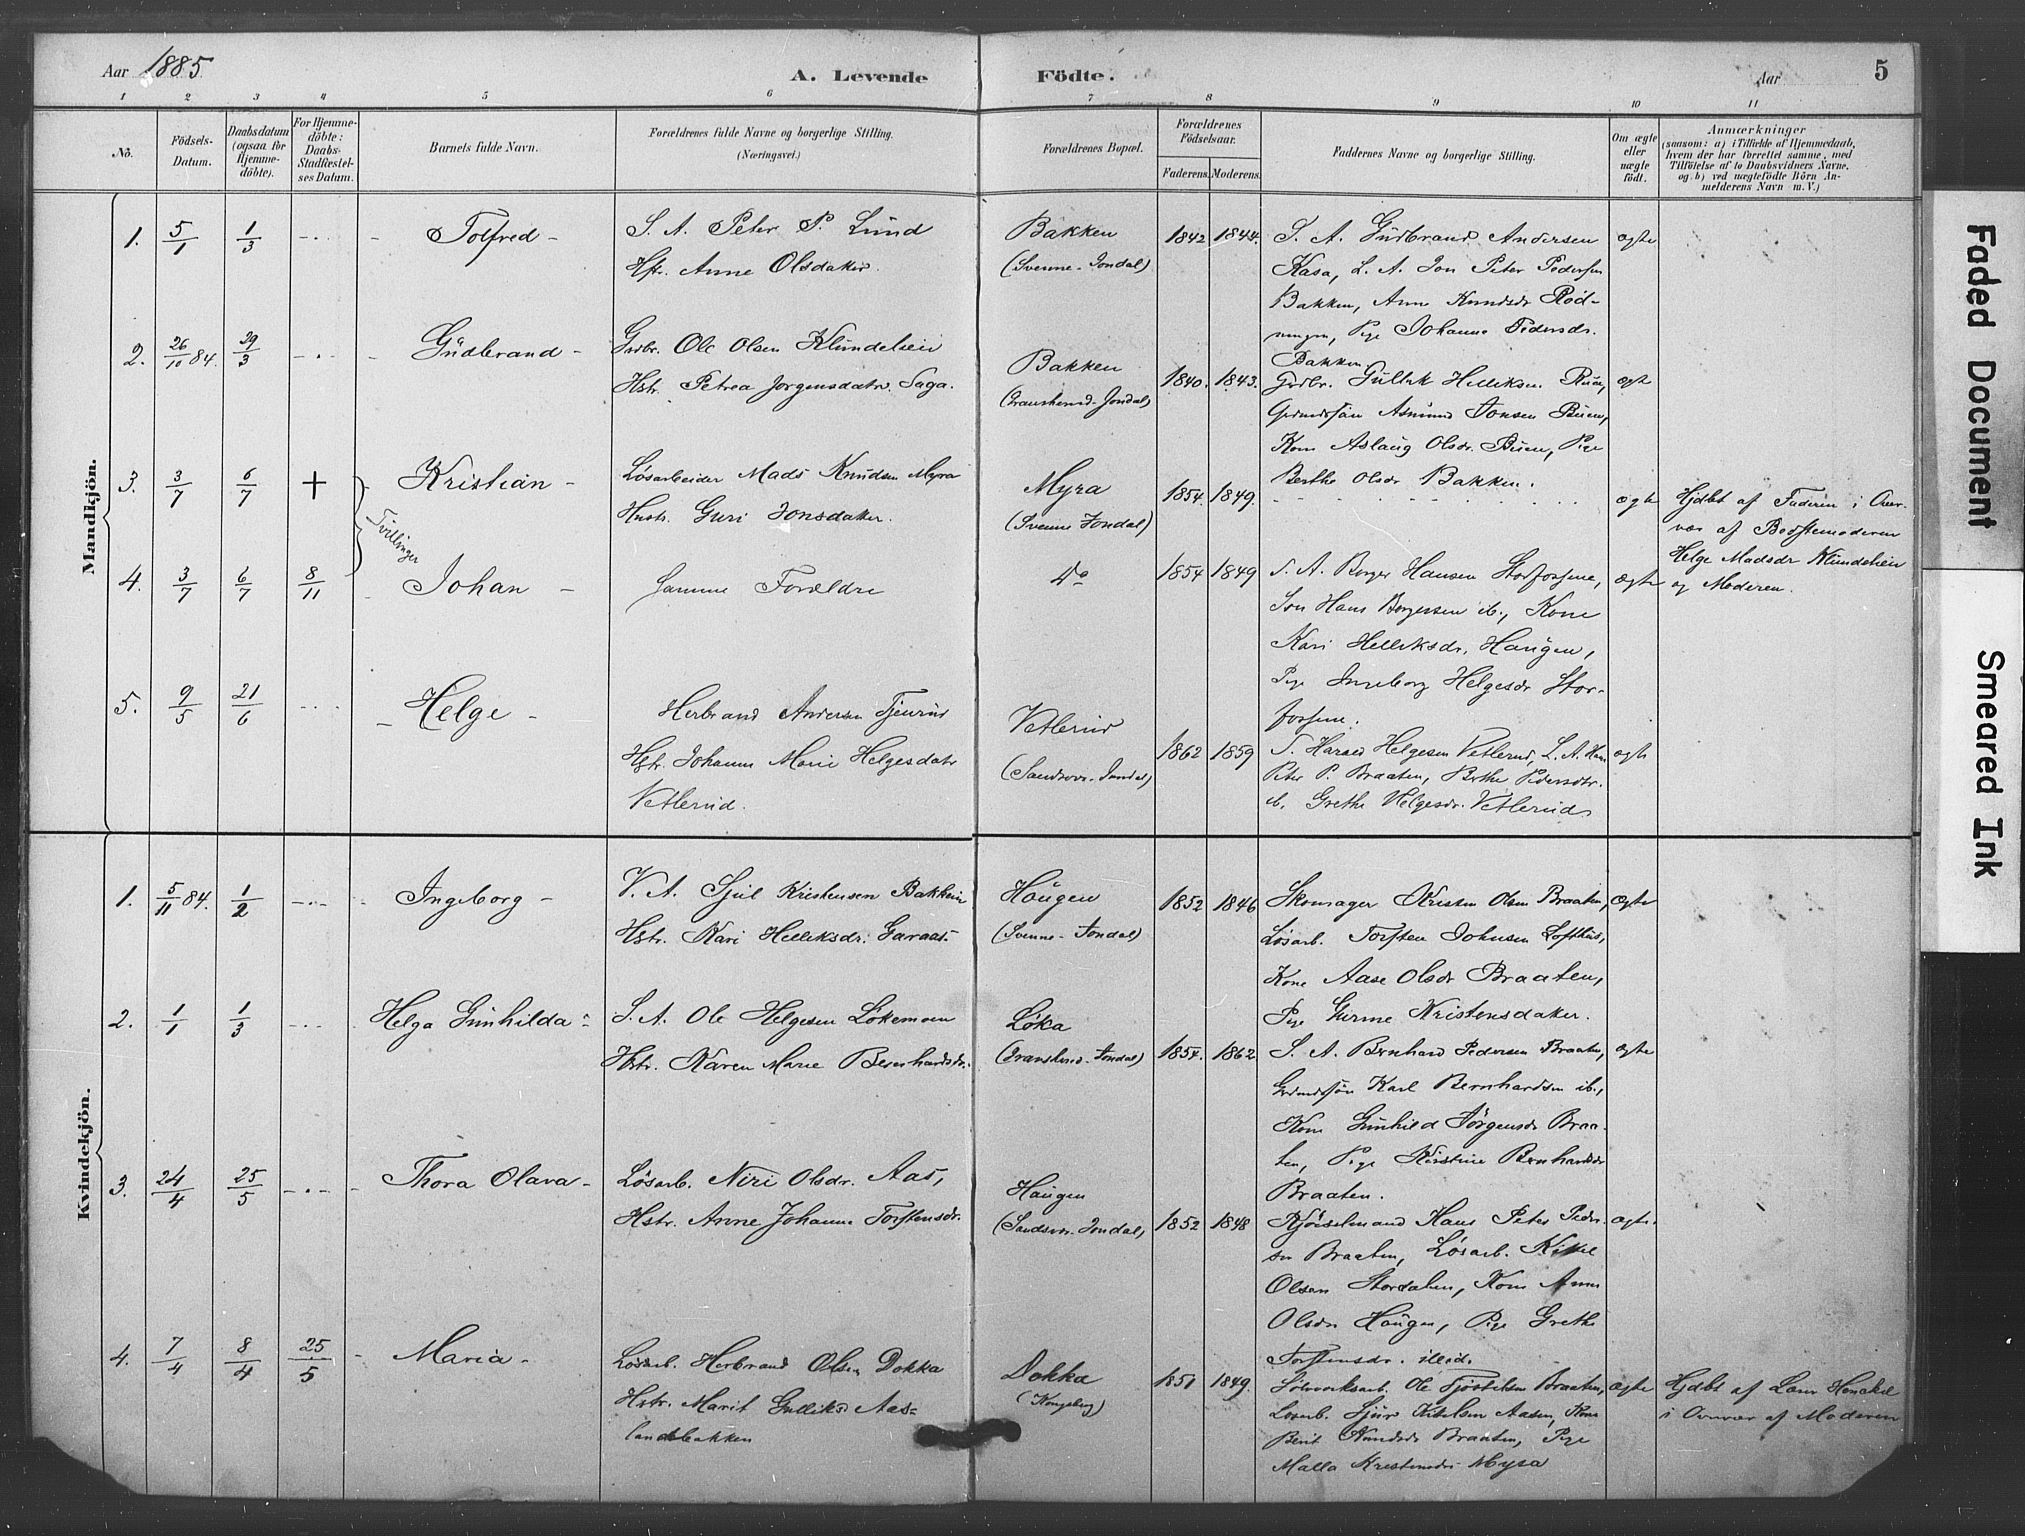 Aar 1885
A. Levende Födte.
Aar
5
1 2 3 4 5 6 7 8 9 10 11
No.
Födsels-
Datum.
Daabsdatum
(ogsaa for
Hjemme-
döbte).
For Hjemme-
döbte:
Daabs-
Stadfæstel-
ses Datum.
Barnets fulde Navn.
Forældrenes fulde Navne og borgerlige Stilling.
(Næringsvei.)
Forældrenes Bopæl.
Forældrenes
Födselsaar.
Faderens. Moderens.
Faddernes Navne og borgerlige Stilling.
Om ægte
eller
uægte
födt.
Anmærkninger
(saasom: a) i Tilfælde af Hjemmedaab,
hvem der har forrettet samme, med
Tilföielse af to Daabsvidners Navne.
og b) ved uægtefödte Börn An-
melderens Navn m. V.)
Mandkjön.
1. 5/1 1/3 Tolfred
S. A. Peter P. Lund
Hstr. Anne Olsdater.
Bakken
(Svenne-Jondal)
1842 1844.
S. A. Gudbrand Andersen
Kasa, L. A. Jon Peter Pedersen
Bakken, Anne Knudsdr Rød-
ningen, Pige Johanne Pedersdr.
Bakken
ægte
2. 26/10 84. 29/3 Gudbrand
Grdbr. Ole Olsen Klundelien
Hstr. Petrea Jørgensdatr. Saga.
Bakken
(Transherad-Jondal)
1840. 1843.
Grdbr. Gullik Helliksen Ruen,
Grdmdssøn Asmund Jonsen Buen,
Kone Aslaug Olsdr. Buen, Pige
Berthe Olsdr Bakken.
ægt
3. 3/7 6/7 + Kristian
Løsarbeider Mads Knudsen Myra
Hustr. Guri Jonsdater.
Myra
(Svenne Jondal)
1854. 1849.
ægte
Hjdbt af Faderen i Over-
vær af Bedstemoderen
Helge Madsdr Klundelien
og Moderen.
Tvillinger
4. 3/7 6/7 8/11 Johan
Samme Forældre
Do
1854 1849
S. A. Borger Hansen Storfossene,
Søn Hans Borgersen ib., Kone
Kari Helliksdr. Haugen,
Pige Ingeborg Helgesdr Stor-
fossene.
ægte
5. 9/5 21/6 Helge
Herbrand Andersen Tjenrud
Hstr. Johanne Marie Helgesdatr
Vetlerud.
Vetlerud
(Sandsvær-Jondal)
1862 1859
S. Harald Helgesen Vetlerud, L. A. Hans
Peter P. Braaten, Berthe Pedersdtr.
ib. Grethe Helgesdr. Vetlerud
ægte
Kvindekjön.
1. 5/11 84. 1/2 Ingeborg
V. A. Sjul Kristensen Bakkene
Hstr. Kari Helliksdr. Garaas-
Haugen
(Svenne-Jondal)
1852 1846
Skomager Kristen Olsen Braaten,
Løsarb. Torsten Johnsen Lofthus,
Kone Aase Olsdr Braaten,
Pige Gurine Kristensdater.
ægte
2. 1/1 1/3 Helga Gunhilda
S. A. Ole Helgesen Løkemoen
Hstr. Karen Marie Bernhardsdr.
Løka
(Transherad-Jondal)
1854. 1862
S. A. Bernhard Pedersen Braaten,
Grdmdssøn Karl Bernhardsen ib.,
Kone Gunhild Jørgensdr Braa-
ten, Pige Kirstine Bernhardsdr
Braaten.
ægte
3. 24/4 25/5 Thora Olava
Løsarb. Niri Olsdr. Aas,
Hstr. Anne Johanne Torstensdr.
Haugen
(Sandsvær-Jondal)
1852 1848
Kjøiselmand Hans Peter Peder-
sen Braaten, Løsarb. Kittel
Olsen Stordalen, Kone Anne
Olsdr Haugen, Pige Grethe
Torstensdr. illeid.
ægte.
4. 7/4 8/4 25/5 Maria
Løsarb. Herbrand Olsen Dokka
Hstr. Marit Gulliksd Aas-
landsbakken
Dokka
(Kongsberg)
1851 1849.
Sølvverksarb. Ole Tjøstelsen Braaten,
Løsarb. Sjur Kittelsen Aasen, Kone
Berit Knudsdr Braaten, Pige
Malla Kristensdr Myra
ægte
Hjdbt af Lærer Henckel
i Overvær af Moderen
Faded Document
Smeared Ink